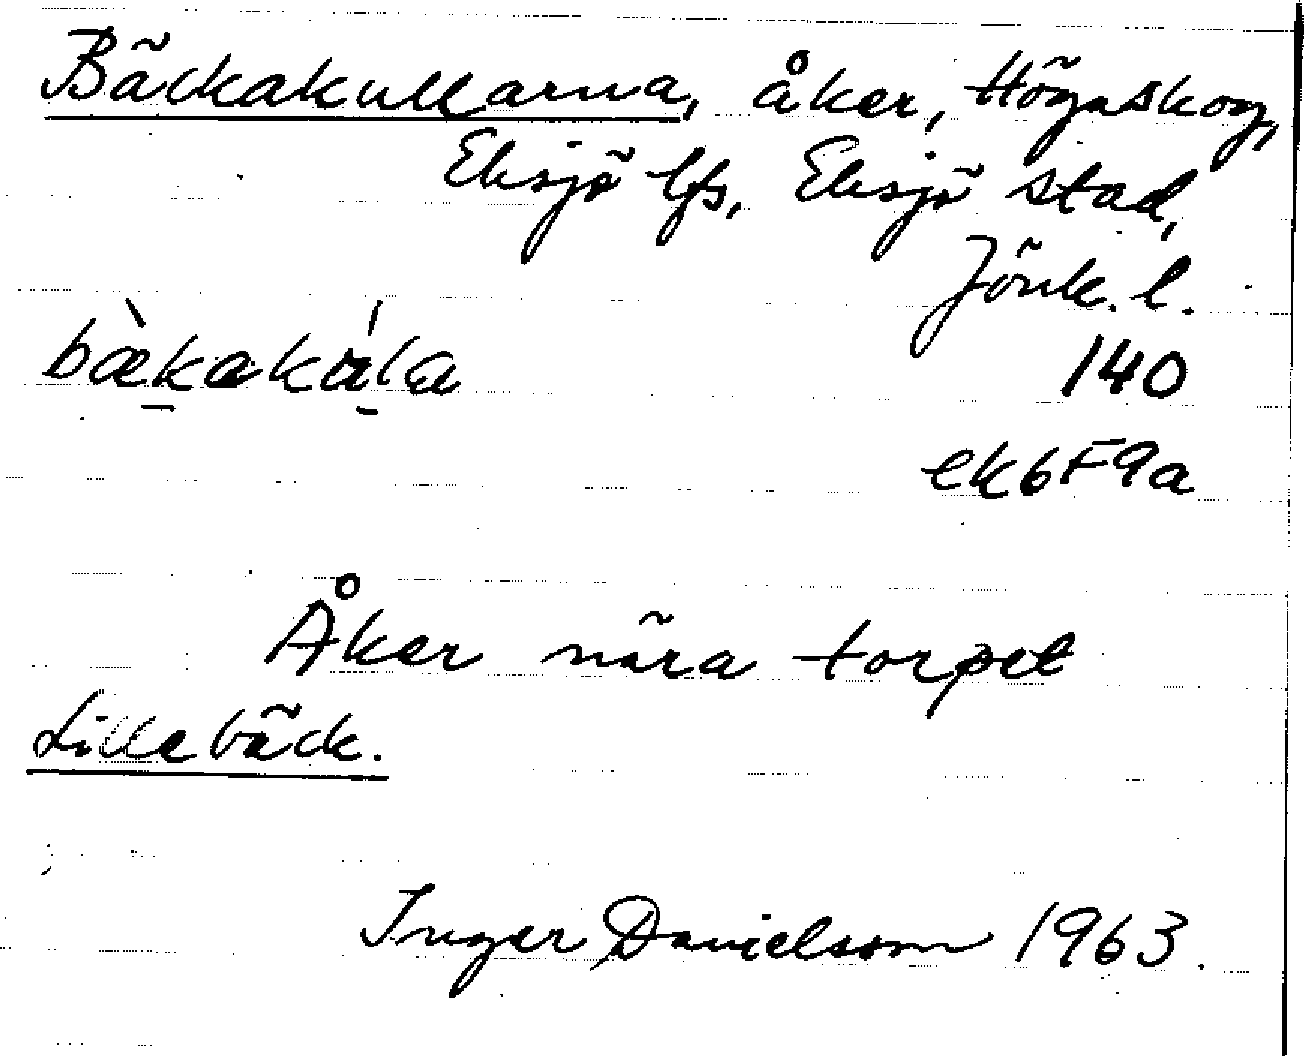 Bäckakullarna, åker, Högaskog,
Eksjö lfs, Eksjö stad,
Jönk. l.
bæ̀kakála
140
ek6F9a
Åker nära torpet
Lillebäck.
Inger Danielsson 1963.